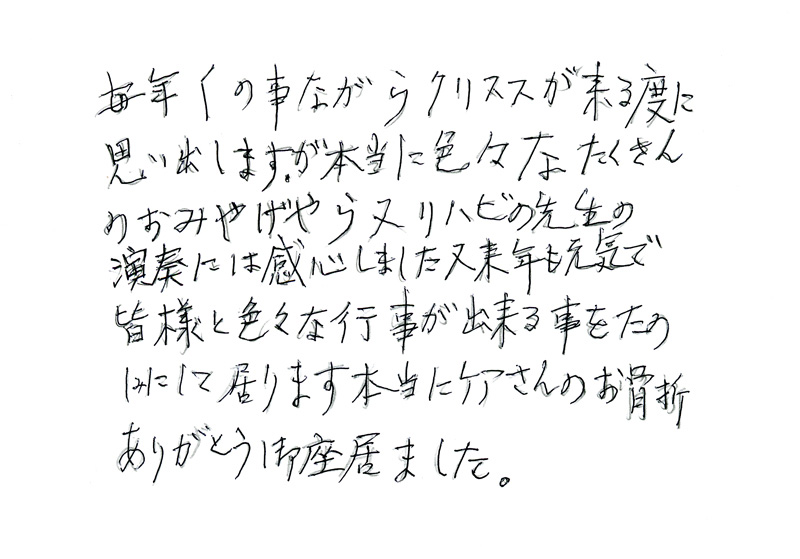 毎年くの事ながらクリススが来る度に
思い出しますが本当に色々なたくさん
のおみやげやら又リハビの先生の
演奏には感心しました又来年も元気で
皆様と色々な行事が出来る事をたの
しみにして居ります本当にケアさんのお骨折
ありがとう御座居ました。